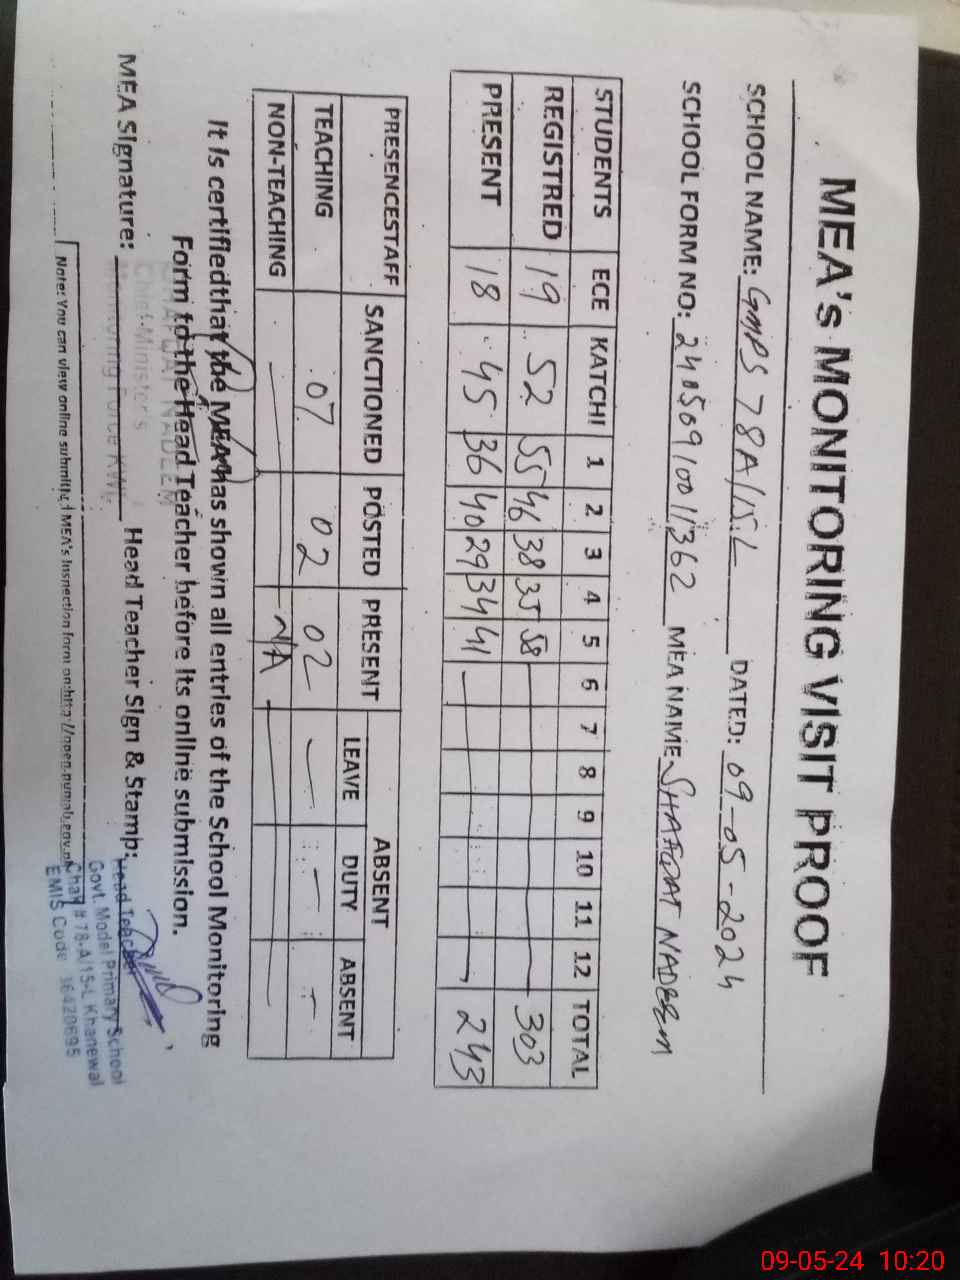 MEA's MONITORING VISIT PROOF
SCHOOL NAME: GMPS 78A/15.L DATED: 09-05-2024
SCHOOL FORM NO: 24050910011362 MEA NAME SHAFQAT NADEEM
STUDENTS ECE KATCHI 1 2 3 4 5 6 7 8 9 10 11 12 TOTAL
REGISTRED 19 52 55 46 38 35 58 303
PRESENT 18 45 36 40 29 34 41 243
PRESENCESTAFF SANCTIONED POSTED PRESENT ABSENT
LEAVE DUTY ABSENT
TEACHING 07 02 02
NON-TEACHING N/A
It is certifiedthat the MEA has shown all entries of the School Monitoring
Form to the Head Teacher before its online submission.
SHAFQAT NADEEM
Chief Minister's
Monitoring Force KWL
MEA Signature: Head Teacher Sign & Stamp:
Head Teacher
Govt. Model Primary School
Chak # 78-A/15-L Khanewal
EMIS Code 36420695
Note: You can view online submitted MEA's Inspection form on:http://open.punjab.gov.pk
09-05-24 10:20